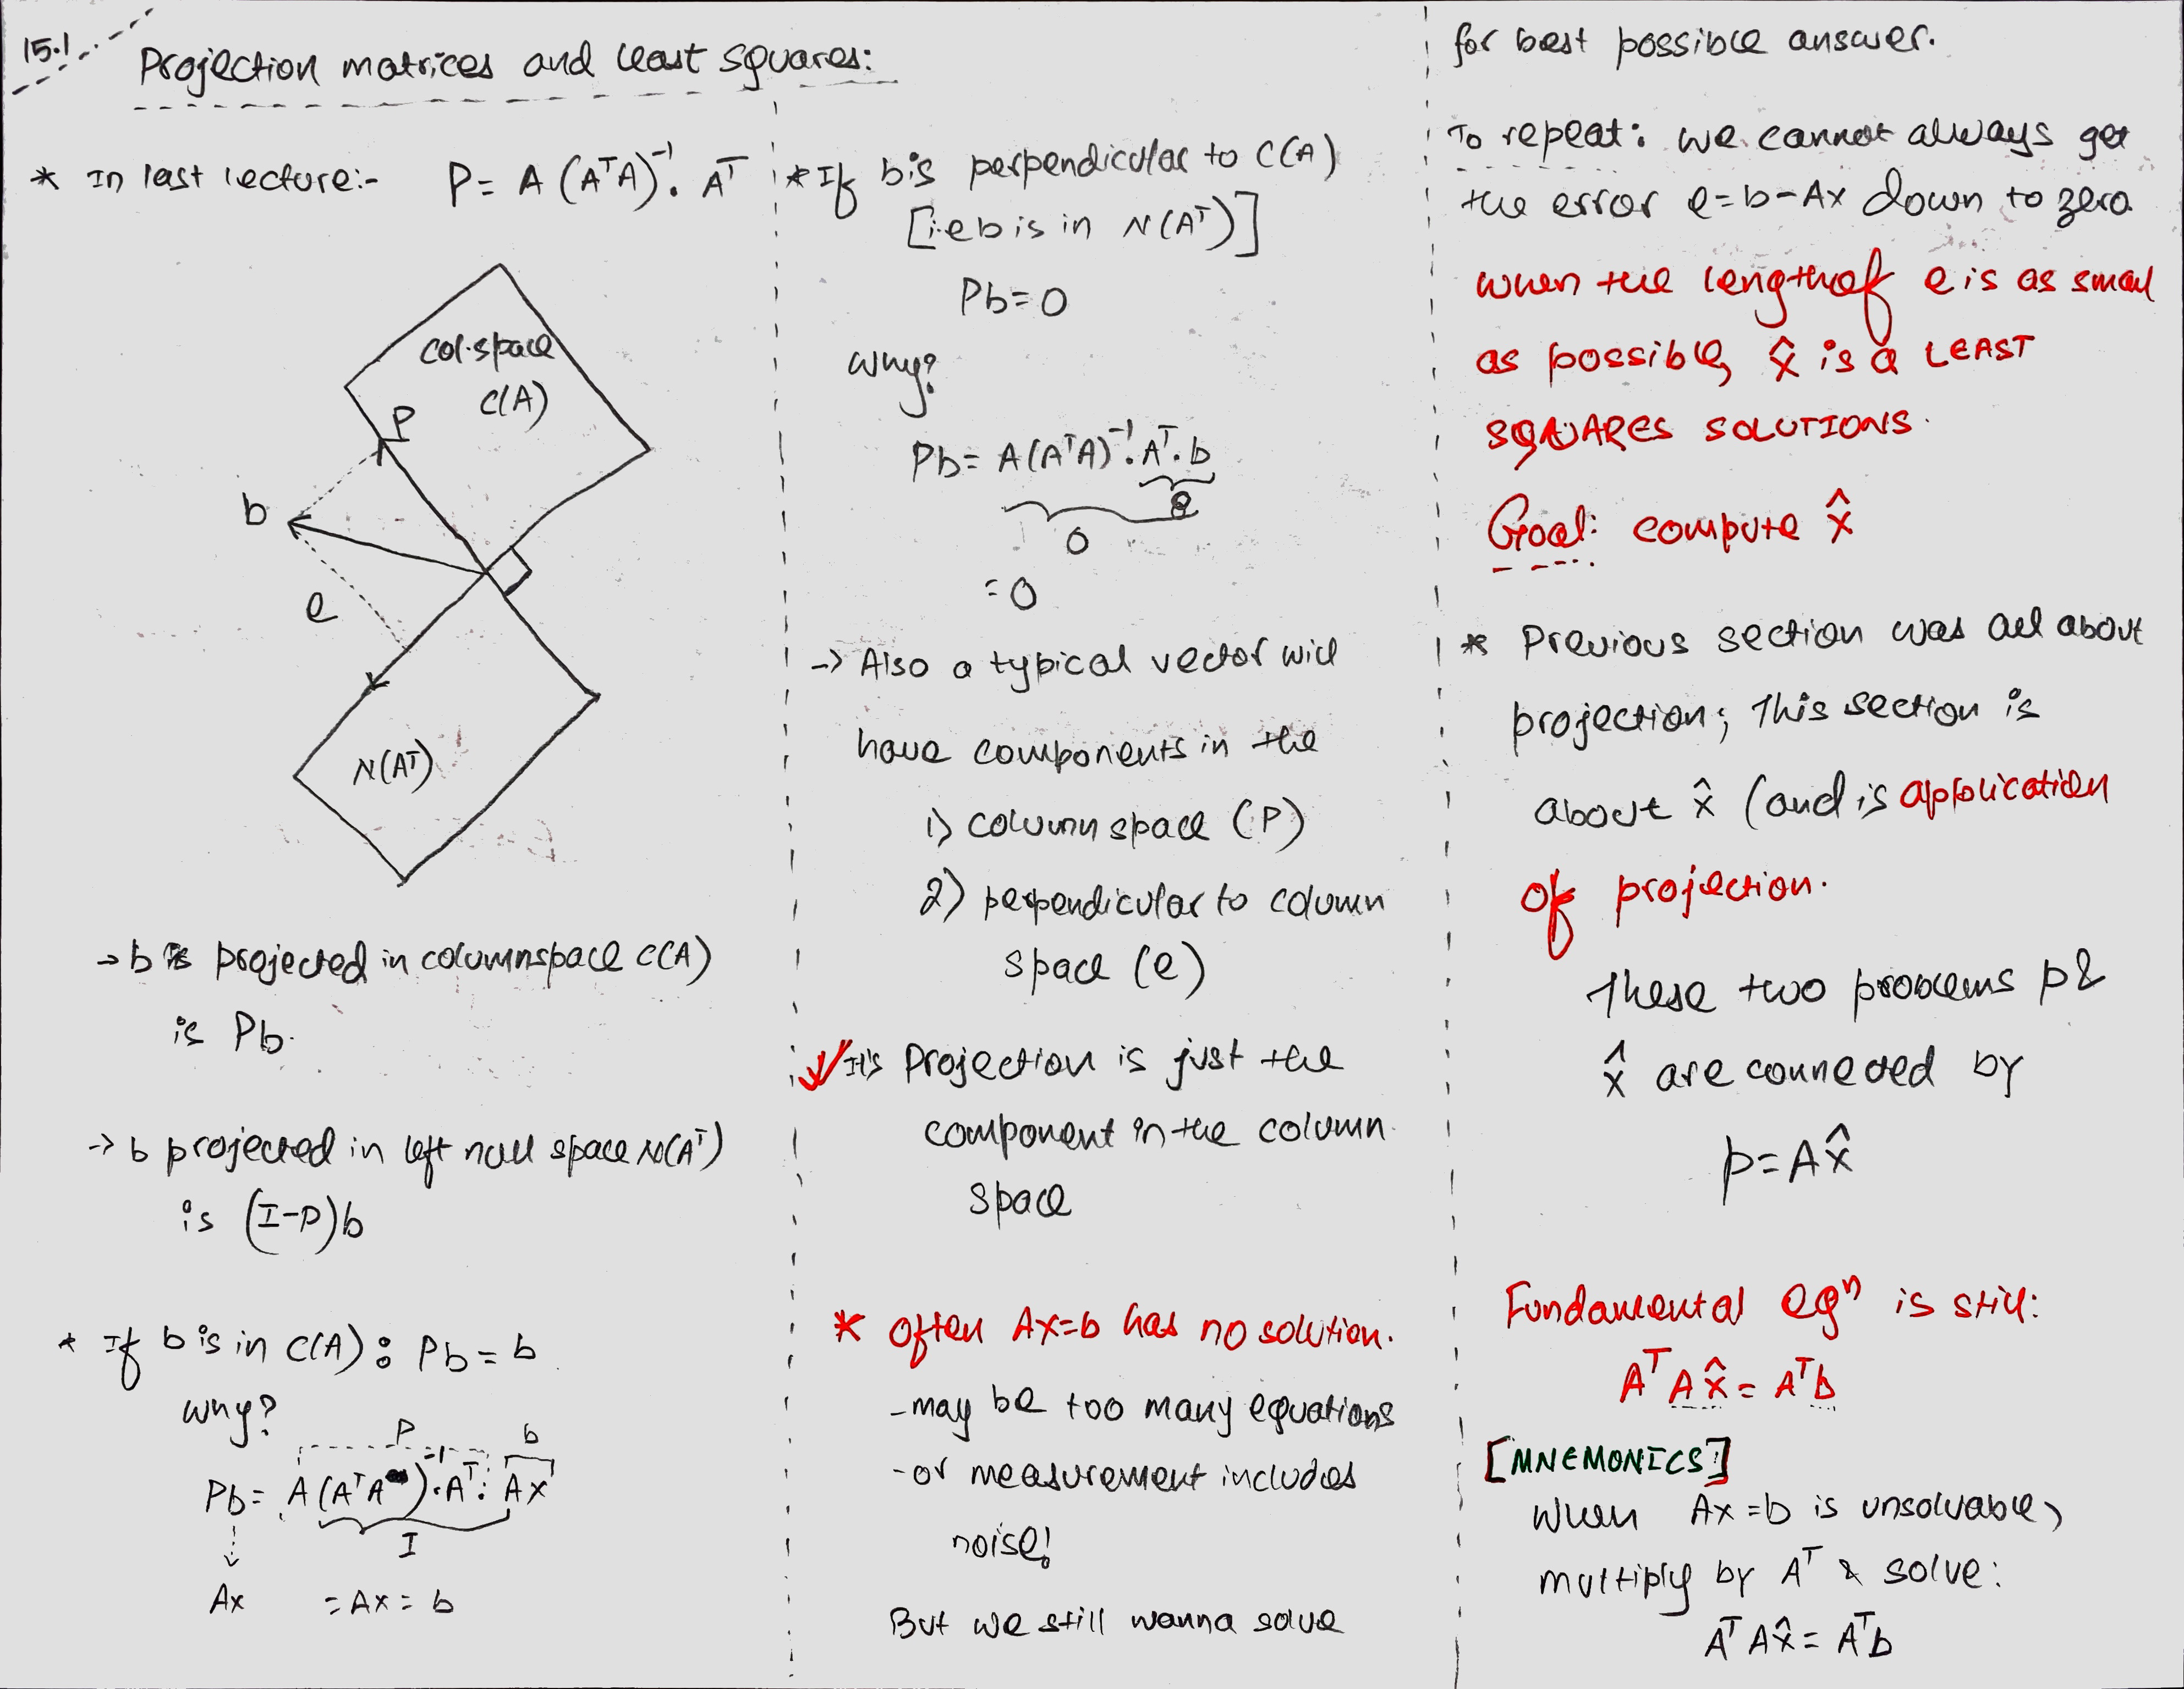 15.1
Projection matrices and least squares:
* In last lecture:- P = A (AᵀA)⁻¹. Aᵀ
col.space
C(A)
P
b
e
N(Aᵀ)
→ b is projected in columnspace C(A)
is Pb.
→ b projected in left null space N(Aᵀ)
is (I-P)b
* If b is in C(A): Pb = b
why?
P b
Pb = A (AᵀA)⁻¹.Aᵀ. Ax
I
Ax = Ax = b
* If b is perpendicular to C(A)
[i.e b is in N(Aᵀ)]
Pb = 0
Why?
Pb = A(AᵀA)⁻¹.Aᵀ.b
0
0
= 0
-> Also a typical vector will
have components in the
1) column space (P)
2) perpendicular to column
space (e)
It's Projection is just the
component in the column.
space
* often Ax=b has no solution.
- may be too many equations
- or measurement includes
noise!
But we still wanna solve
for best possible answer.
To repeat: we cannot always get
the error e=b-Ax down to zero.
when the length of e is as small
as possible, x̂ is a LEAST
SQUARES SOLUTIONS.
Goal: compute x̂
* Previous section was all about
projection; This section is
about x̂ (and is application
of projection.
These two problems p &
x̂ are connected by
p = Ax̂
Fundamental eqⁿ is still:
AᵀAx̂ = Aᵀb
[MNEMONICS]
When Ax = b is unsolvable,
multiply by Aᵀ & solve:
AᵀAx̂ = Aᵀb